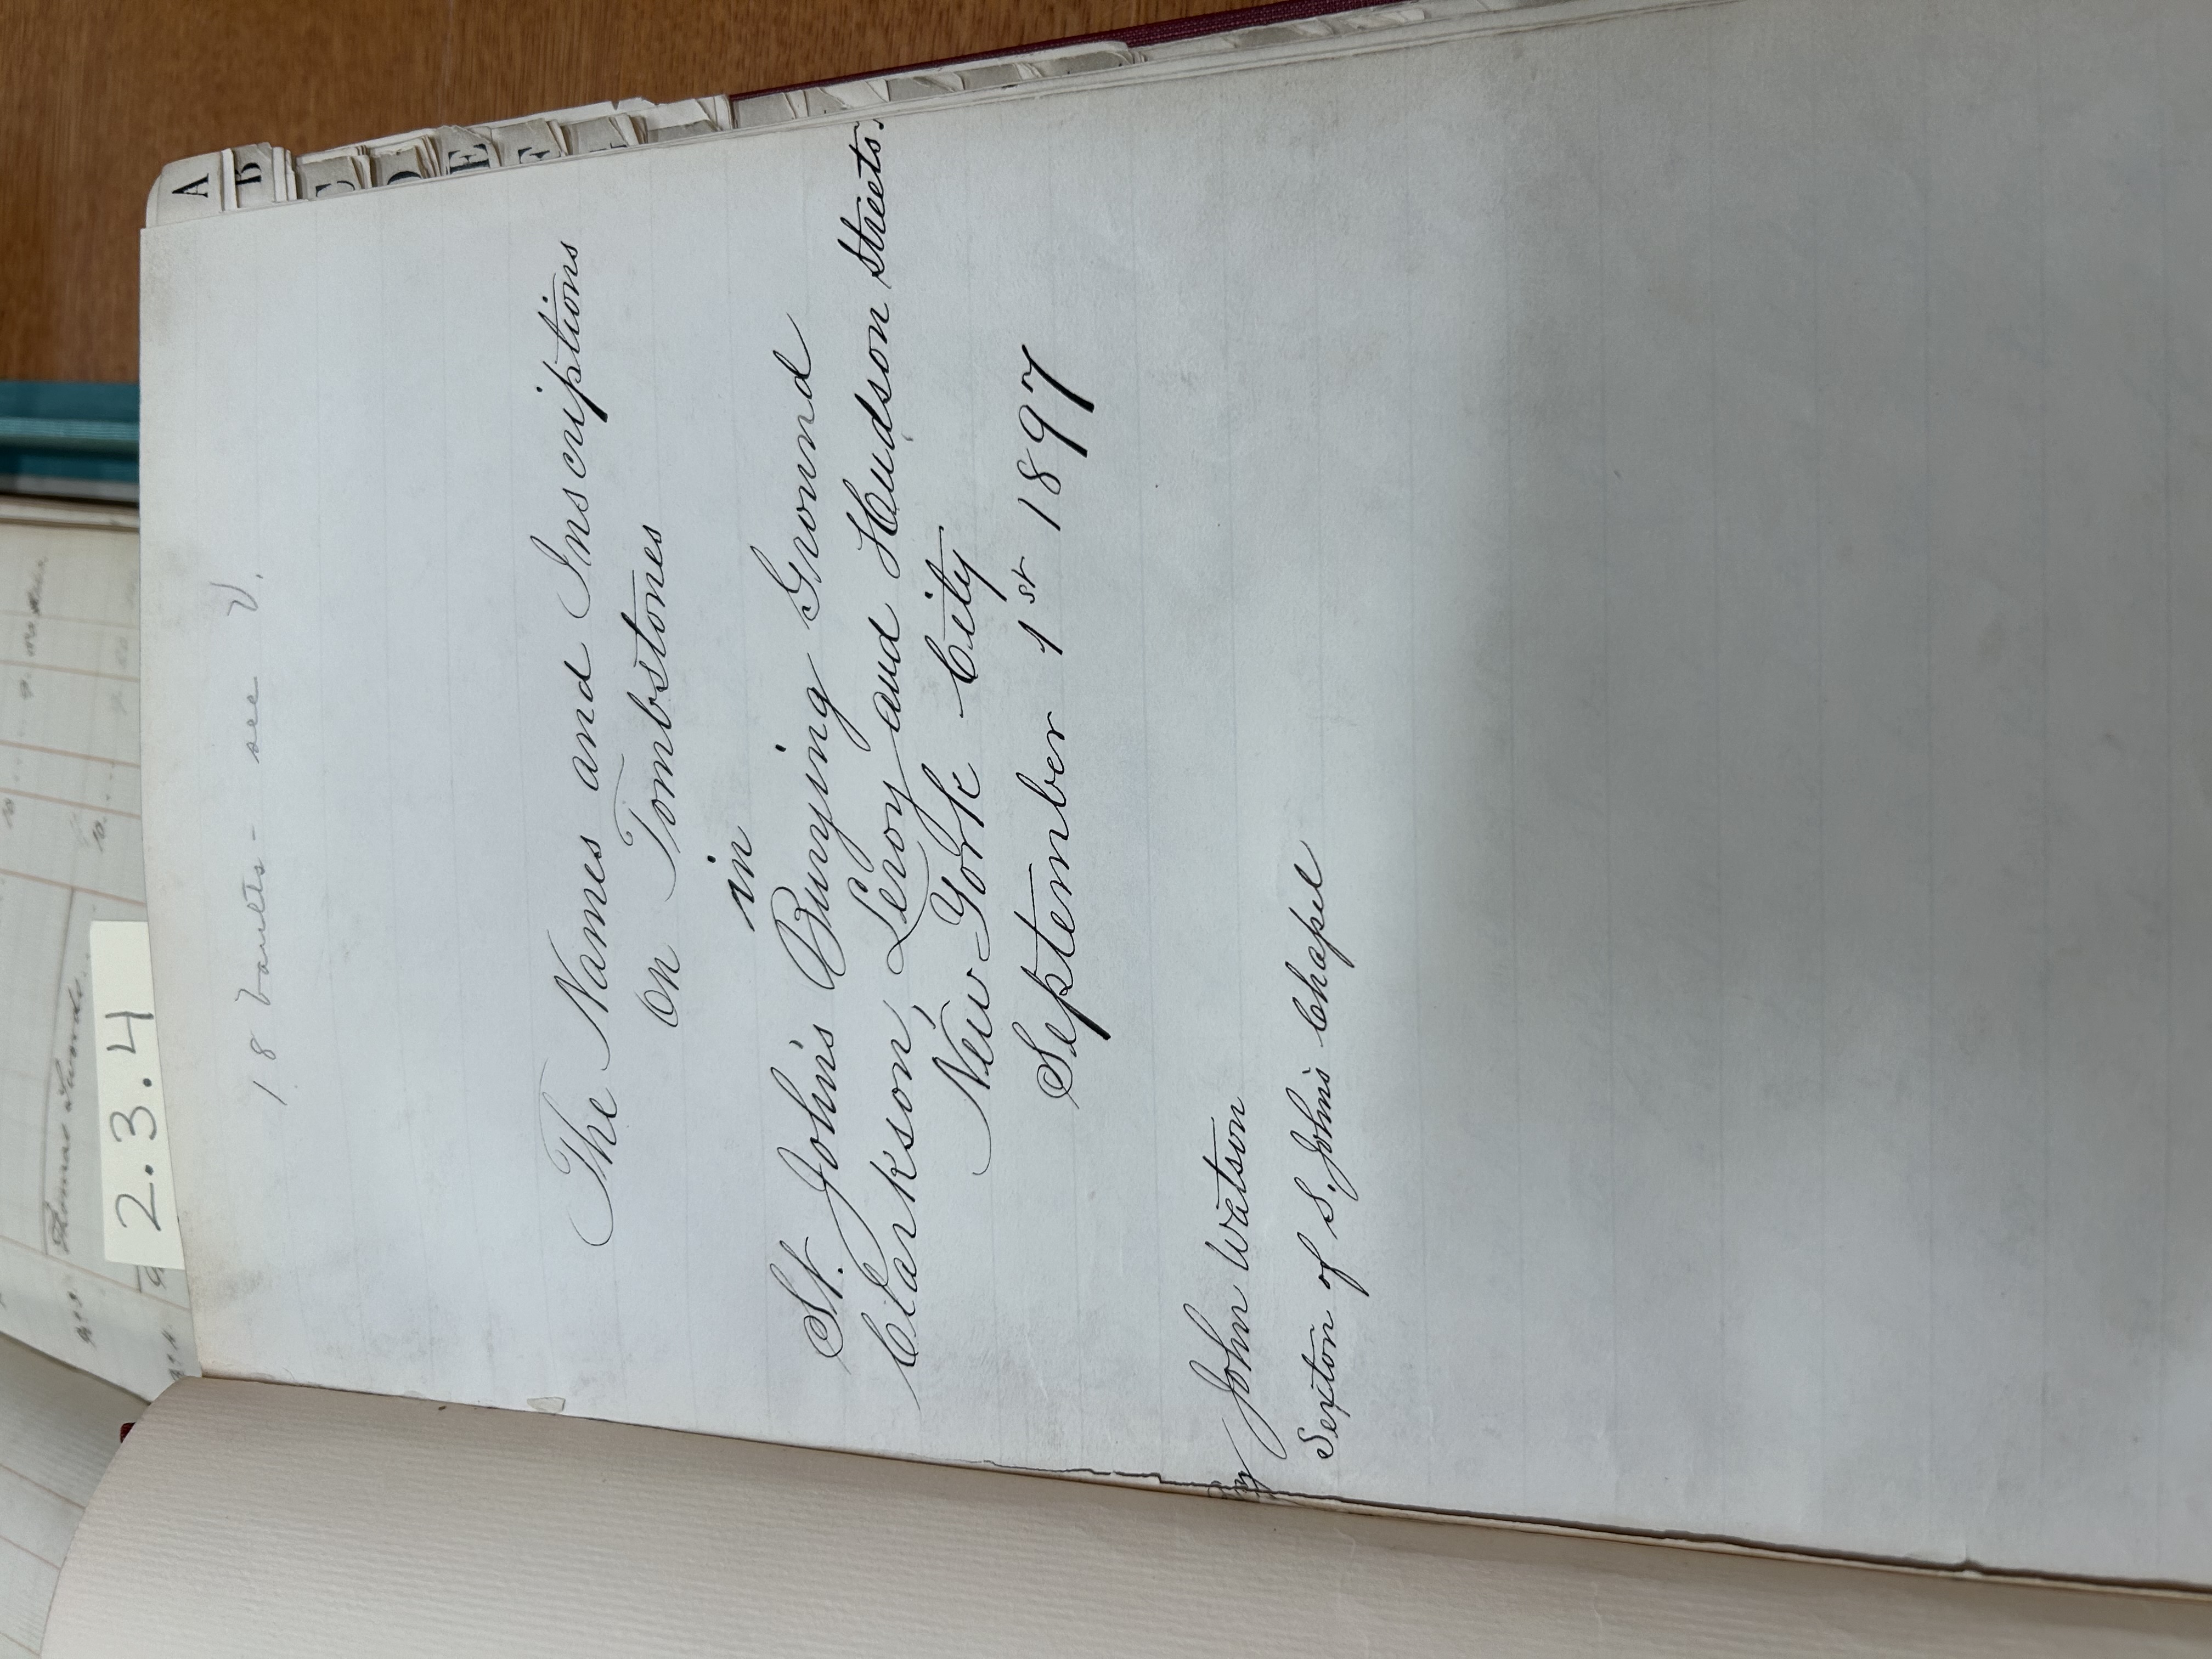 Thomas Swords
10
2.3.4
18 Vaults - see V.
The Names and Inscriptions
On Tombstones
in
St. John's Burying Ground
Clarkson, Leroy and Hudson Streets.
New York City
September 1st 1897
by John Watson
Sexton of S. John's Chapel
A
B
C
D
E
F